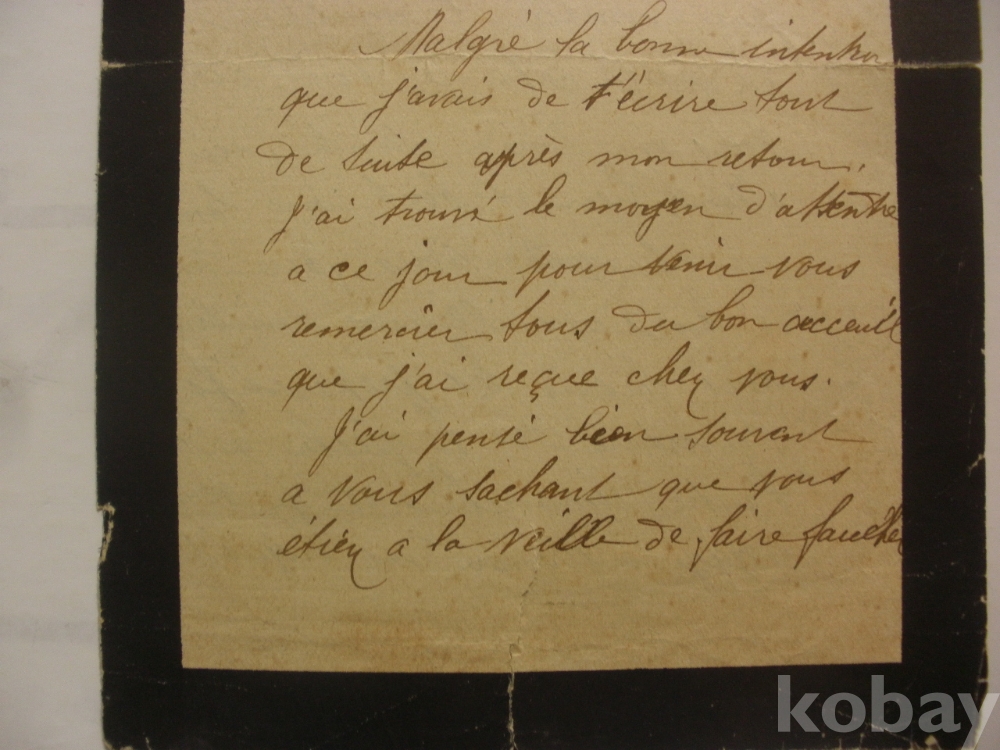 Malgré la bonne intention
que j'avais de t'écrire tout
de suite après mon retour,
J'ai trouvé le moyen d'attentre
a ce jour pour venir vous
remercier tous du bon acceuil
que j'ai reçue chez vous.
J'ai pensé bien souvent
a vous sachant que vous
étiez a la veille de faire faucher
kobay